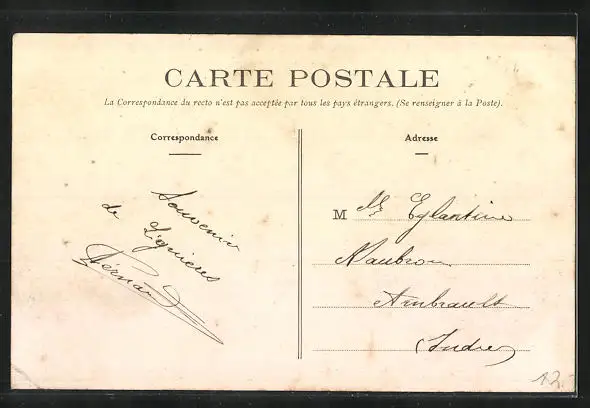 CARTE POSTALE
La Correspondance du recto n'est pas acceptée par tous les pays étrangers. (Se renseigner à la Poste).
Correspondance
Souvenir
de Lignières
Fernand
Adresse
M Eglantine
Naubron
Ambrault
Indre
12